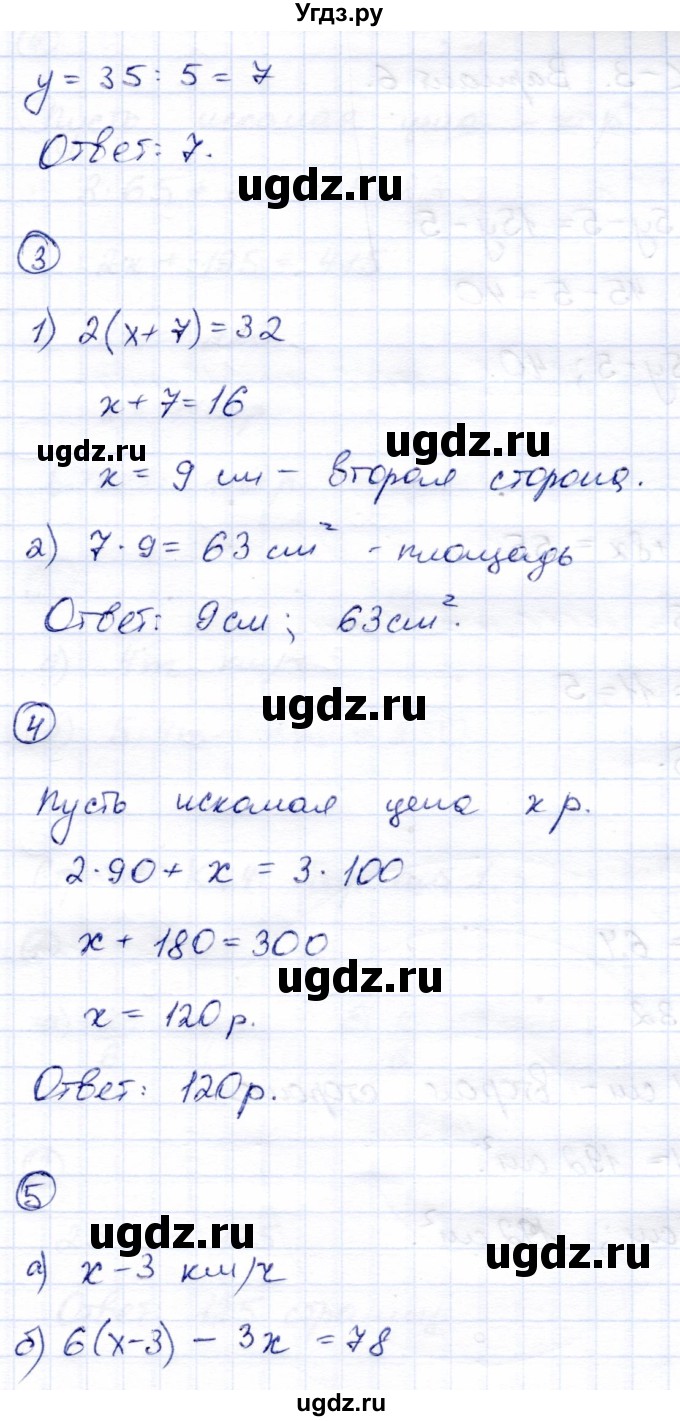 Угдз.ру
y = 35 : 5 = 7
Ответ: 7.
ugdz.ru
3
1) 2(x + 7) = 32
x + 7 = 16
ugdz.ru
ugdz.ru
x = 9 см – вторая сторона.
2) 7 · 9 = 63 см² - площадь
Ответ: 9 см ; 63 см².
ugdz.ru
4
Пусть искомая цена x р.
2·90 + x = 3·100
x + 180 = 300
ugdz.ru
x = 120 р.
Ответ: 120 р.
5
ugdz.ru
ugdz.ru
а) x – 3 км/ч
б) 6(x–3) – 3x = 78
ugdz.ru